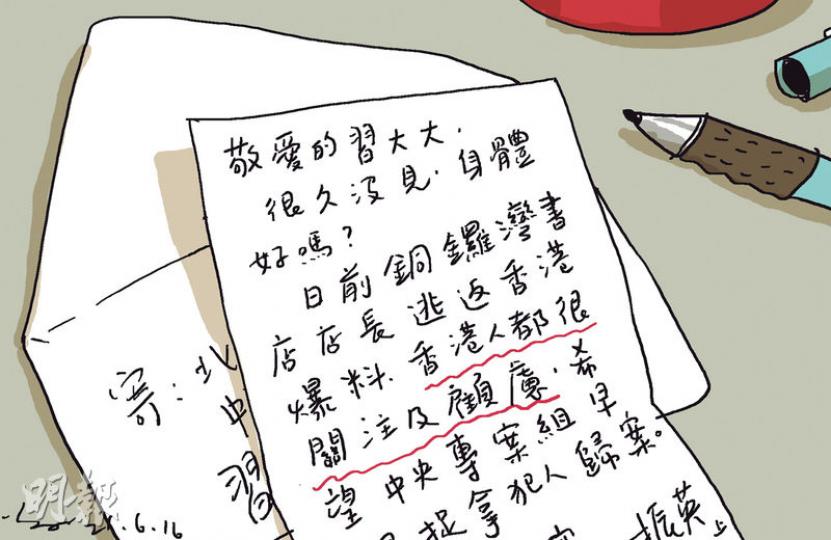 敬愛的習大大.
很久沒見.身體
好嗎?
日前銅鑼灣書
店店長逃返香港
爆料.香港人都很
關注及顧慮.希
望中央專案組早
捉拿犯人歸案。
振英上
寄:北
中
習
明報
6.16